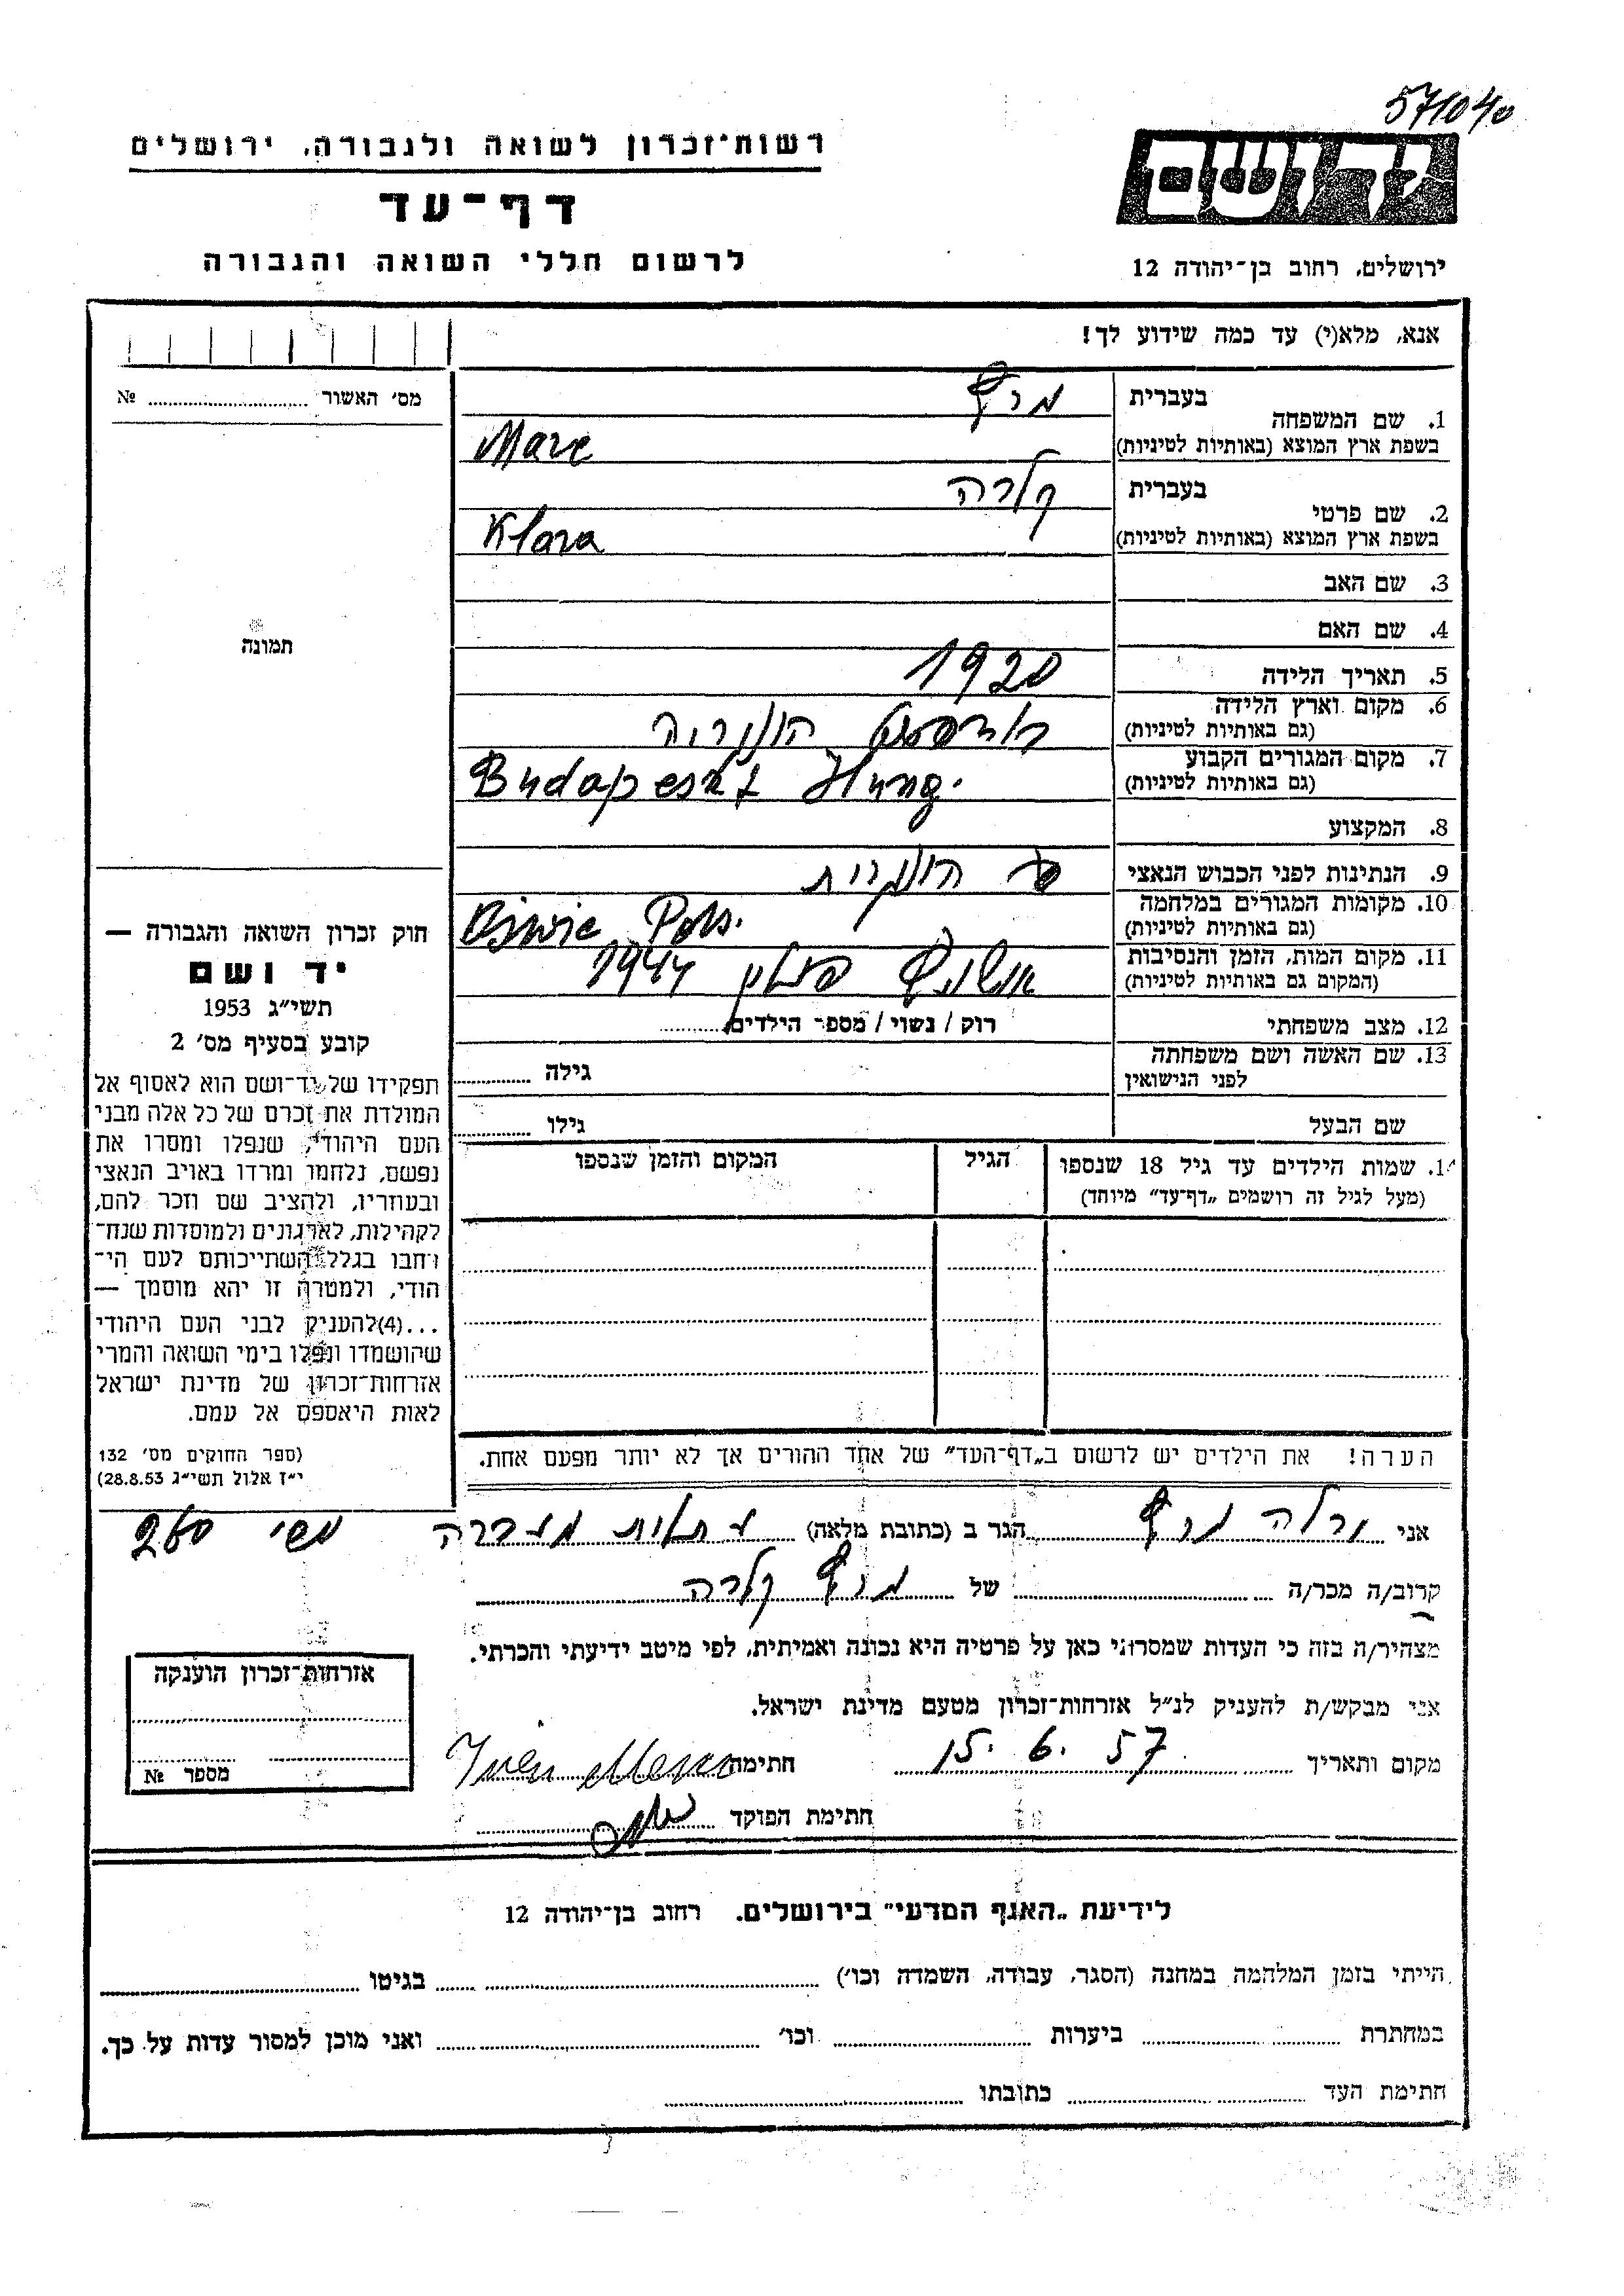 571040
רשות־זכרון לשואה ולגבורה, ירושלים
דף־עד
לרשום חללי השואה והגבורה
יד ושם
ירושלים, רחוב בן־יהודה 12
אנא, מלא(י) עד כמה שידוע לך!
מס׳ האשור № 
1. שם המשפחה בעברית
בשפת ארץ המוצא (באותיות לטיניות)
2. שם פרטי בעברית קלרה
בשפת ארץ המוצא (באותיות לטיניות) Klara
3. שם האב
4. שם האם
5. תאריך הלידה 1920
6. מקום וארץ הלידה בודפסט הונגריה
(גם באותיות לטיניות)
7. מקום המגורים הקבוע Budapest Hung.
(גם באותיות לטיניות)
8. המקצוע
9. הנתינות לפני הכבוש הנאצי הונגרית
10. מקומות המגורים במלחמה
(גם באותיות לטיניות)
11. מקום המות, הזמן והנסיבות פולין 1944
(המקום גם באותיות לטיניות)
12. מצב משפחתי רוק / נשוי / מספר הילדים
13. שם האשה ושם משפחתה גילה
לפני הנישואין
שם הבעל גילו
1. שמות הילדים עד גיל 18 שנספו הגיל המקום והזמן שנספו
(מעל לגיל זה רושמים „דף־עד״ מיוחד)
הערה! את הילדים יש לרשום ב„דף־העד״ של אחד ההורים אך לא יותר מפעם אחת.
תמונה
חוק זכרון השואה והגבורה —
יד ושם
תשי״ג 1953
קובע בסעיף מס׳ 2
תפקידו של יד־ושם הוא לאסוף אל
המולדת את זכרם של כל אלה מבני
העם היהודי, שנפלו ומסרו את
נפשם, נלחמו ומרדו באויב הנאצי
ובעוזריו, ולהציב שם וזכר להם,
לקהילות, לארגונים ולמוסדות שנח־
רבו בגלל השתייכותם לעם הי־
הודי, ולמטרה זו יהא מוסמך —
...(4)להעניק לבני העם היהודי
שהושמדו ונפלו בימי השואה והמרי
אזרחות־זכרון של מדינת ישראל
לאות היאספם אל עמם.
(ספר החוקים מס׳ 132
י״ז אלול תשי״ג 28.8.53)
אני הגר ב (כתובת מלאה) 260
קרוב/ה מכר/ה של קלרה
מצהיר/ה בזה כי העדות שמסרתי כאן על פרטיה היא נכונה ואמיתית, לפי מיטב ידיעתי והכרתי.
אני מבקש/ת להעניק לנ״ל אזרחות־זכרון מטעם מדינת ישראל.
מקום ותאריך 15. 6. 57 חתימה
חתימת הפוקד
אזרחות־זכרון הוענקה
מספר №
לידיעת „האגף המדעי״ בירושלים. רחוב בן־יהודה 12
הייתי בזמן המלחמה במחנה (הסגר, עבודה, השמדה וכו׳) בגיטו
במחתרת ביערות וכו׳ ואני מוכן למסור עדות על כך.
חתימת העד כתובתו